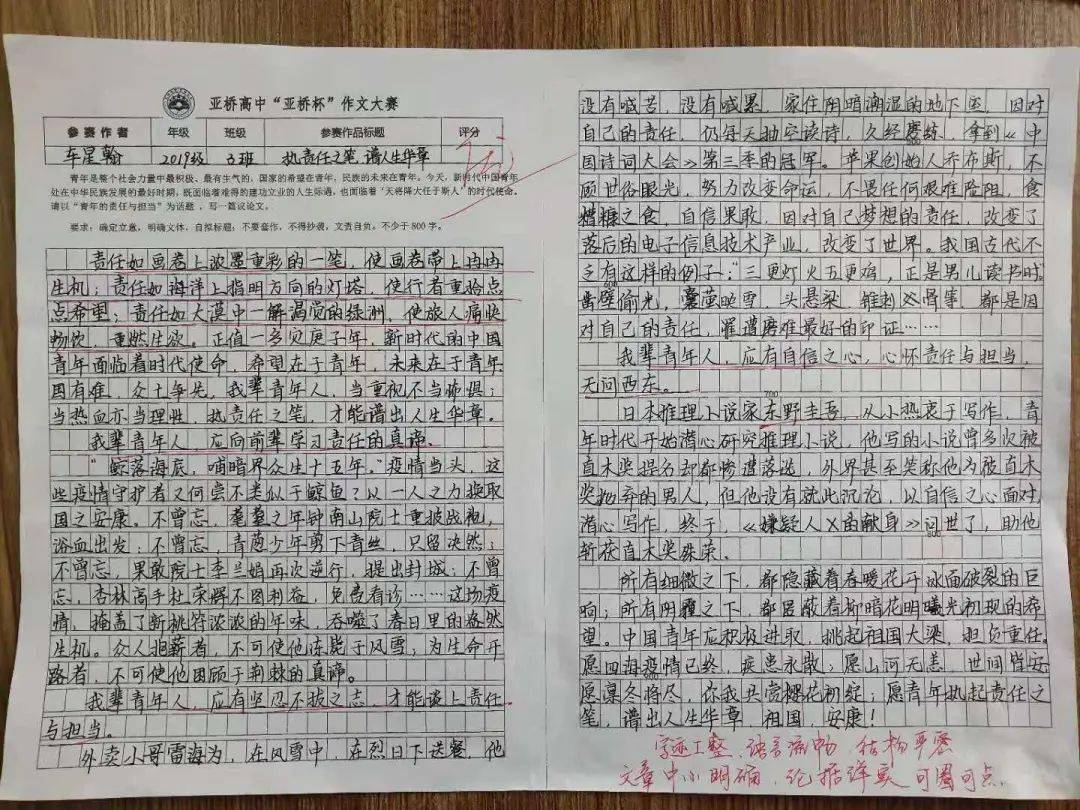 亚桥高中“亚桥杯”作文大赛
参赛作者 年级 班级 参赛作品标题 评分
车星翰 2019级 3班 执责任之笔,谱人生华章
青年是整个社会力量中最积极、最有生气的,国家的希望在青年,民族的未来在青年。今天,新时代中国青年
处在中华民族发展的最好时期,既面临着难得的建功立业的人生际遇,也面临着“天将降大任于斯人”的时代使命。
请以“青年的责任与担当”为话题,写一篇议论文。
要求:确定立意,明确文体,自拟标题;不要套作,不得抄袭,文责自负。不少于800字。
责任如画卷上浓墨重彩的一笔,使画卷带上冉冉
生机;责任如海洋上指明方向的灯塔,使行者重拾点
点希望;责任如大漠中一解渴觉的绿洲,使旅人痛快
畅饮,重燃生欲。正值一多灾庚子年,新时代的中国
青年面临着时代使命,希望在于青年,未来在于青年
国有难,众士争先,我辈青年人,当重视不当怖惧;
当热血亦当理性,执责任之笔,才能谱出人生华章。
我辈青年人,应向前辈学习责任的真谛。
“鲸落海底,哺暗界众生十五年。”疫情当头,这
些疫情守护者又何尝不类似于鲸鱼?以一人之力换取
国之安康。不曾忘,耄耋之年钟南山院士重披战袍,
浴血出发;不曾忘,青葱少年剪下青丝,只留决然;
不曾忘,果敢院士李兰娟再次逆行,提出封城;不曾
忘,杏林高手杜荣辉不图利益,免费看诊……这场疫
情,掩盖了新桃符浓浓的年味,吞噬了春日里的盎然
生机。众人抱薪者,不可使他冻毙于风雪;为生命开
路者,不可使他困顿于荆棘的真谛。
我辈青年人,应有坚忍不拔之志,才能谈上责任
与担当。
外卖小哥雷海为,在风雪中,在烈日下送餐,他
没有喊苦,没有喊累,家住阴暗潮湿的地下室,因对
自己的责任,仍每天抽空读诗,久经磨练,拿到《中
国诗词大会》第三季的冠军。苹果创始人乔布斯,不
顾世俗眼光,努力改变命运,不畏任何艰难险阻,食
糟糠之食,自信果敢,因对自己梦想的责任,改变了
落后的电子信息技术产业,改变了世界。我国古代不
乏有这样的例子:“三更灯火五更鸡,正是男儿读书时
凿壁偷光,囊萤映雪,头悬梁,锥刺骨等,都是因
对自己的责任,罹遭磨难最好的印证……
我辈青年人,应有自信之心,心怀责任与担当,
无问西东。
日本推理小说家东野圭吾,从小热衷于写作,青
年时代开始潜心研究推理小说,他写的小说曾多次被
直木奖提名却都惨遭落选,外界甚至笑称他为被直木
奖抛弃的男人,但他没有就此沉沦,以自信之心面对,
潜心写作,终于,《嫌疑人X的献身》问世了,助他
斩获直木奖殊荣。
所有细微之下,都隐藏着春暖花开冰面破裂的巨
响;所有阴霾之下,都冒蔽着柳暗花明曙光初现的希
望。中国青年应积极进取,挑起祖国大梁,担负重任。
愿四海疫情已终,疾患永散;愿山河无恙,世间皆安
愿凛冬将尽,你我共赏樱花初绽;愿青年执起责任之
笔,谱出人生华章,祖国,安康!
字迹工整,语言流畅,结构严密
文章中心明确,论据详实,可圈可点.